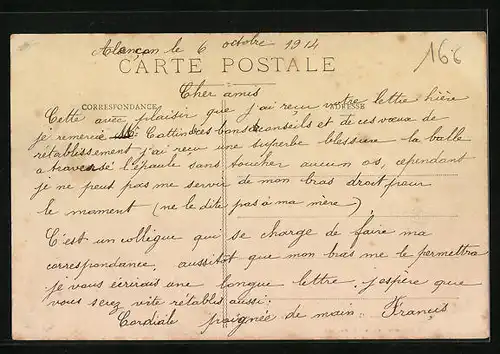 Alençon le 6 octobre 1914
166
CARTE POSTALE
Cher amis
CORRESPONDANCE
ADRESSE
Cette avec plaisir que j'ai reçu votre lettre hière
je remercie Mr Cottin des bons conseils et de ces vœux de
rétablissement j'ai reçu une superbe blessure la balle
a traversé l'épaule sans toucher aucun os, cependant
je ne peus pas me servir de mon bras droit pour
le moment (ne le dite pas à ma mère)
C'est un collègue qui se charge de faire ma
correspondance, aussitot que mon bras me le permettra
je vous écrirais une longue lettre. j'espère que
vous serez vite rétablis aussi:
Cordiale poignée de main: Français